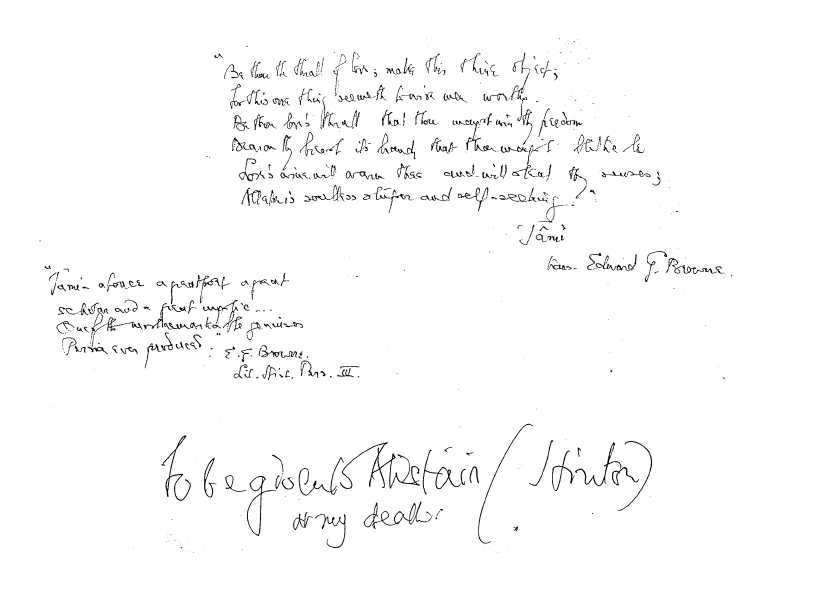 "Be thou the thrall of love; make this thine object;
For this one thing seemeth to wise men worthy.
Be thou love's thrall that thou mayst win thy freedom
Bear on thy breast its brand, that thou mayst
Love's wine will warm thee and will steal thy senses;
All else is soulless stupor and self-seeking."
Jâmi
trans. Edward G. Browne.
"Jâmi - at once a great poet a great
scholar and a great mystic ...
One of the most remarkable geniuses
Persia ever produced." E.G. Browne.
Lit. Hist. Pers. III.
To be given to Alistair (Hinton)
at my death.